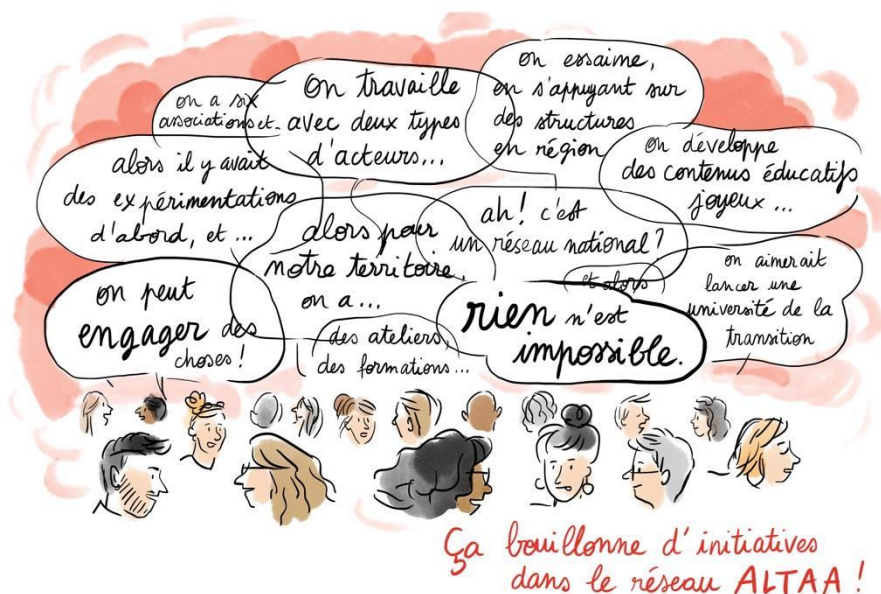 on a six
associations et..
on travaille
avec deux types
d'acteurs...
on essaime,
en s'appuyant sur
des structures
en région
on développe
des contenus éducatifs
joyeux ...
alors il y avait
des expérimentations
d'abord, et ...
alors pour
notre territoire,
on a...
ah! c'est
un réseau national?
et alors
on aimerait
lancer une
université de la
transition
on peut
engager des
choses!
des ateliers,
des formations...
rien n'est
impossible.
Ça bouillonne d'initiatives
dans le réseau ALTAA!